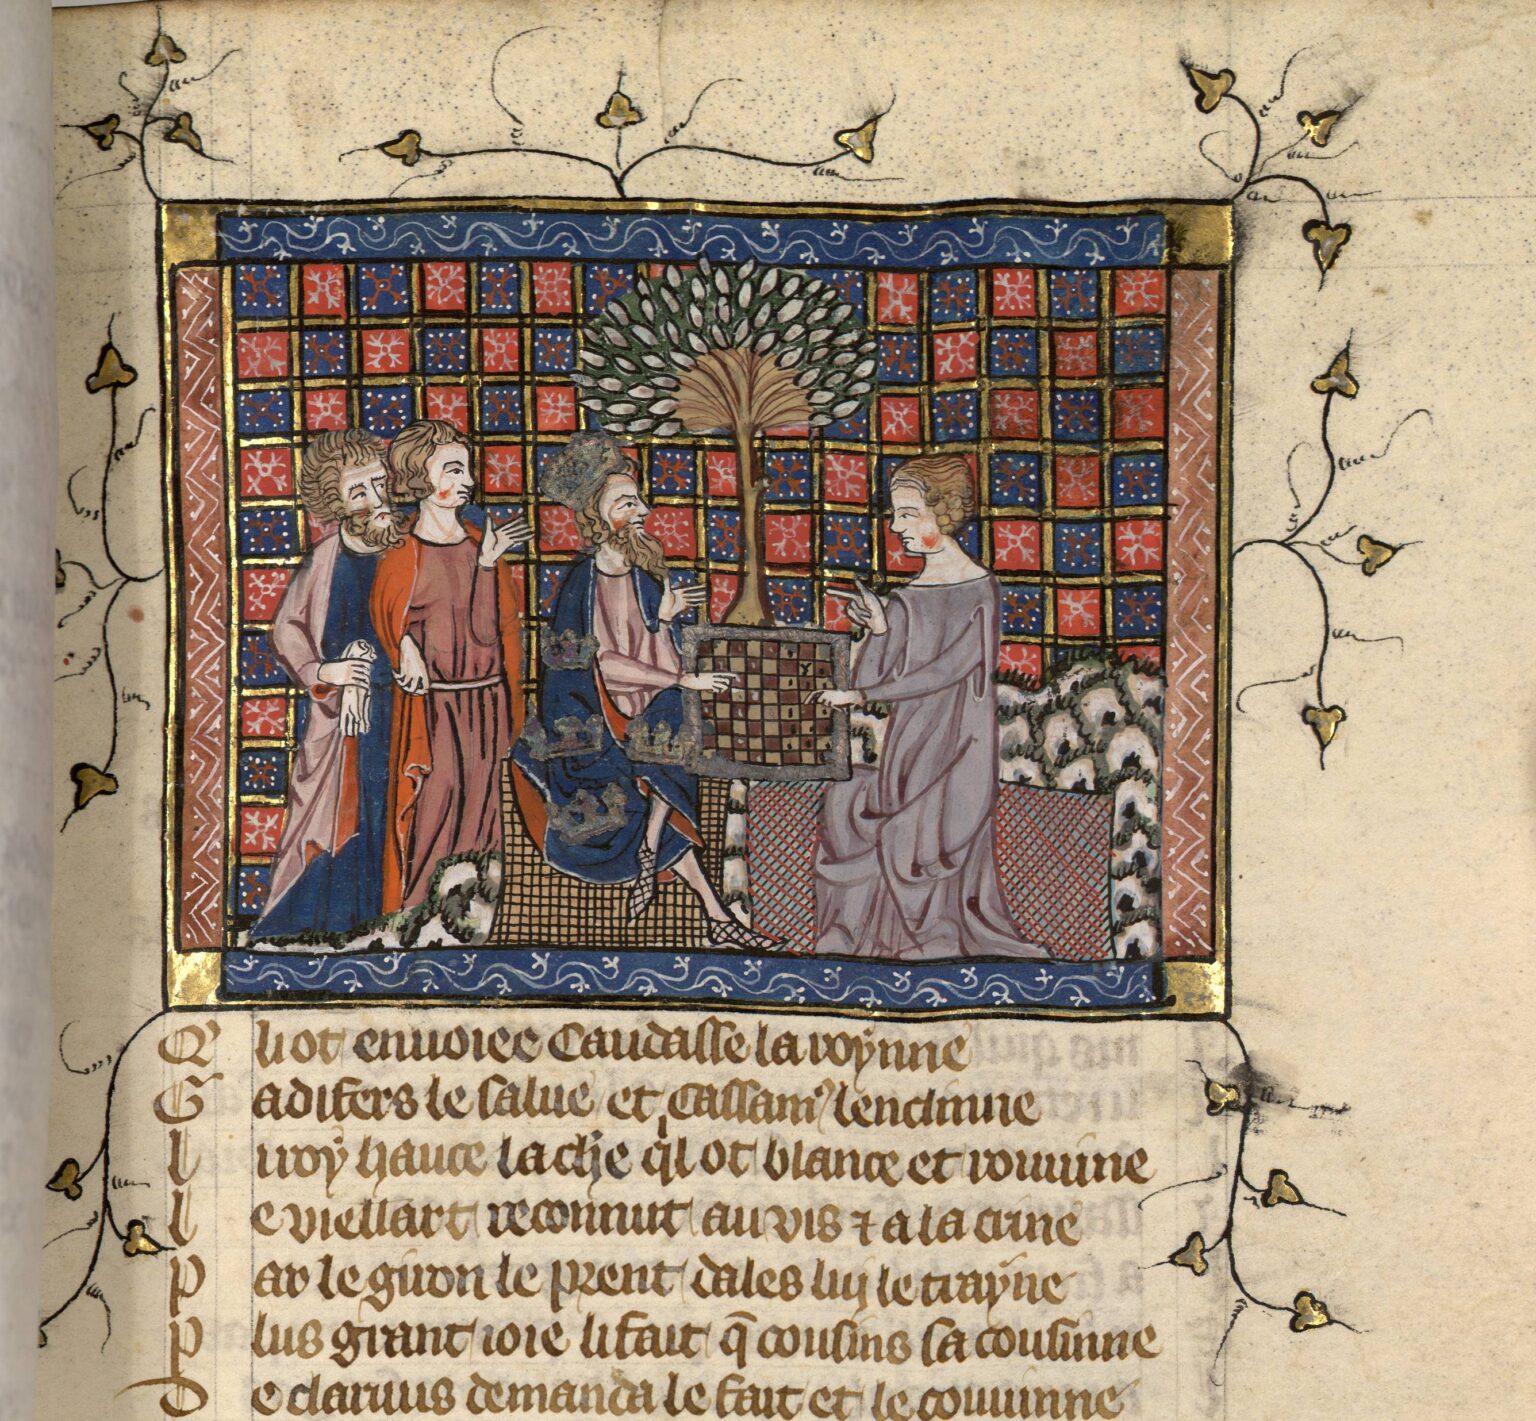 Q li ot enuoiee Caudasse la roynne
G adifers le salue et cassam9 lencline
l i roy hauce la chie ql ot blance et rouuine
l e viellart reconnut au vis ⁊ a la crine
P ar le giron le prent dales luy le trayne
P lus grant ioie li fait q̄ cousins sa cousinne
D e clarvus demanda le fait et le couuinne